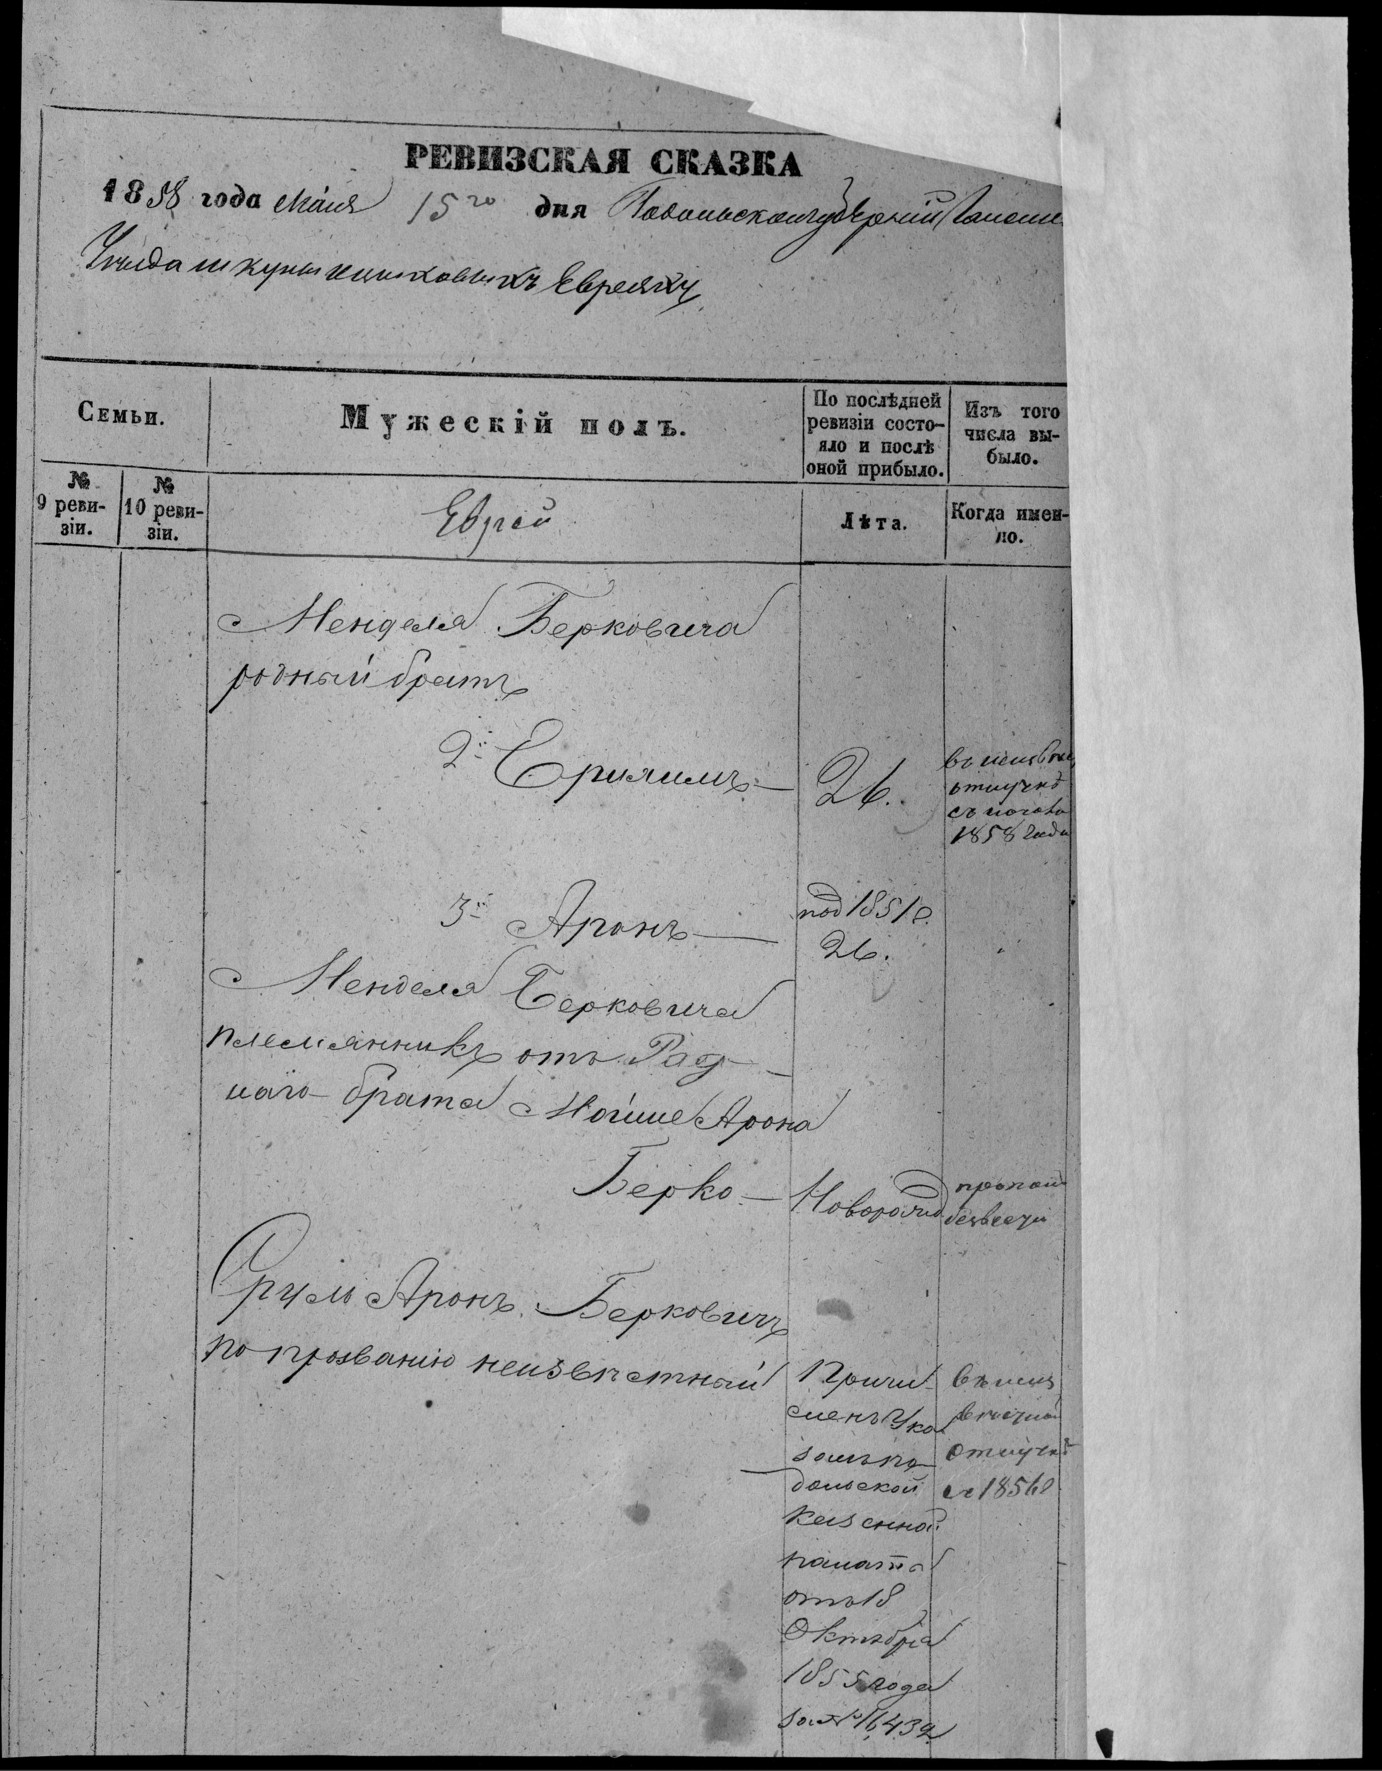 РЕВИЗСКАЯ СКАЗКА
1858 года Маія 15го дня Подольской губерніи
Уезда Евреяхъ
Семьи.
Мужескій полъ.
По послѣдней
ревизіи состо-
яло и послѣ
оной прибыло.
Изъ того
числа вы-
было.
№
9 реви-
зіи.
№
10 реви-
зіи.
Евреи
Лѣта.
Когда имен-
но.
Менделя Берковича
родный братъ
2й 26.
отлучкѣ
1858 года
3й Аронъ
под 1851 г.
26.
Менделя Берковича
племянникъ отъ Род-
наго брата Мойше Арона
Берко Новорожд.
Сруль Аронъ Беркович
по прозванію неизвестный
Причи
сленъ Ука
зомъ По
дольской
Казенной
палаты
отъ 18
Октября
1855 года
за № 16432
въ неиз
вестной
отлучкѣ
с 1856